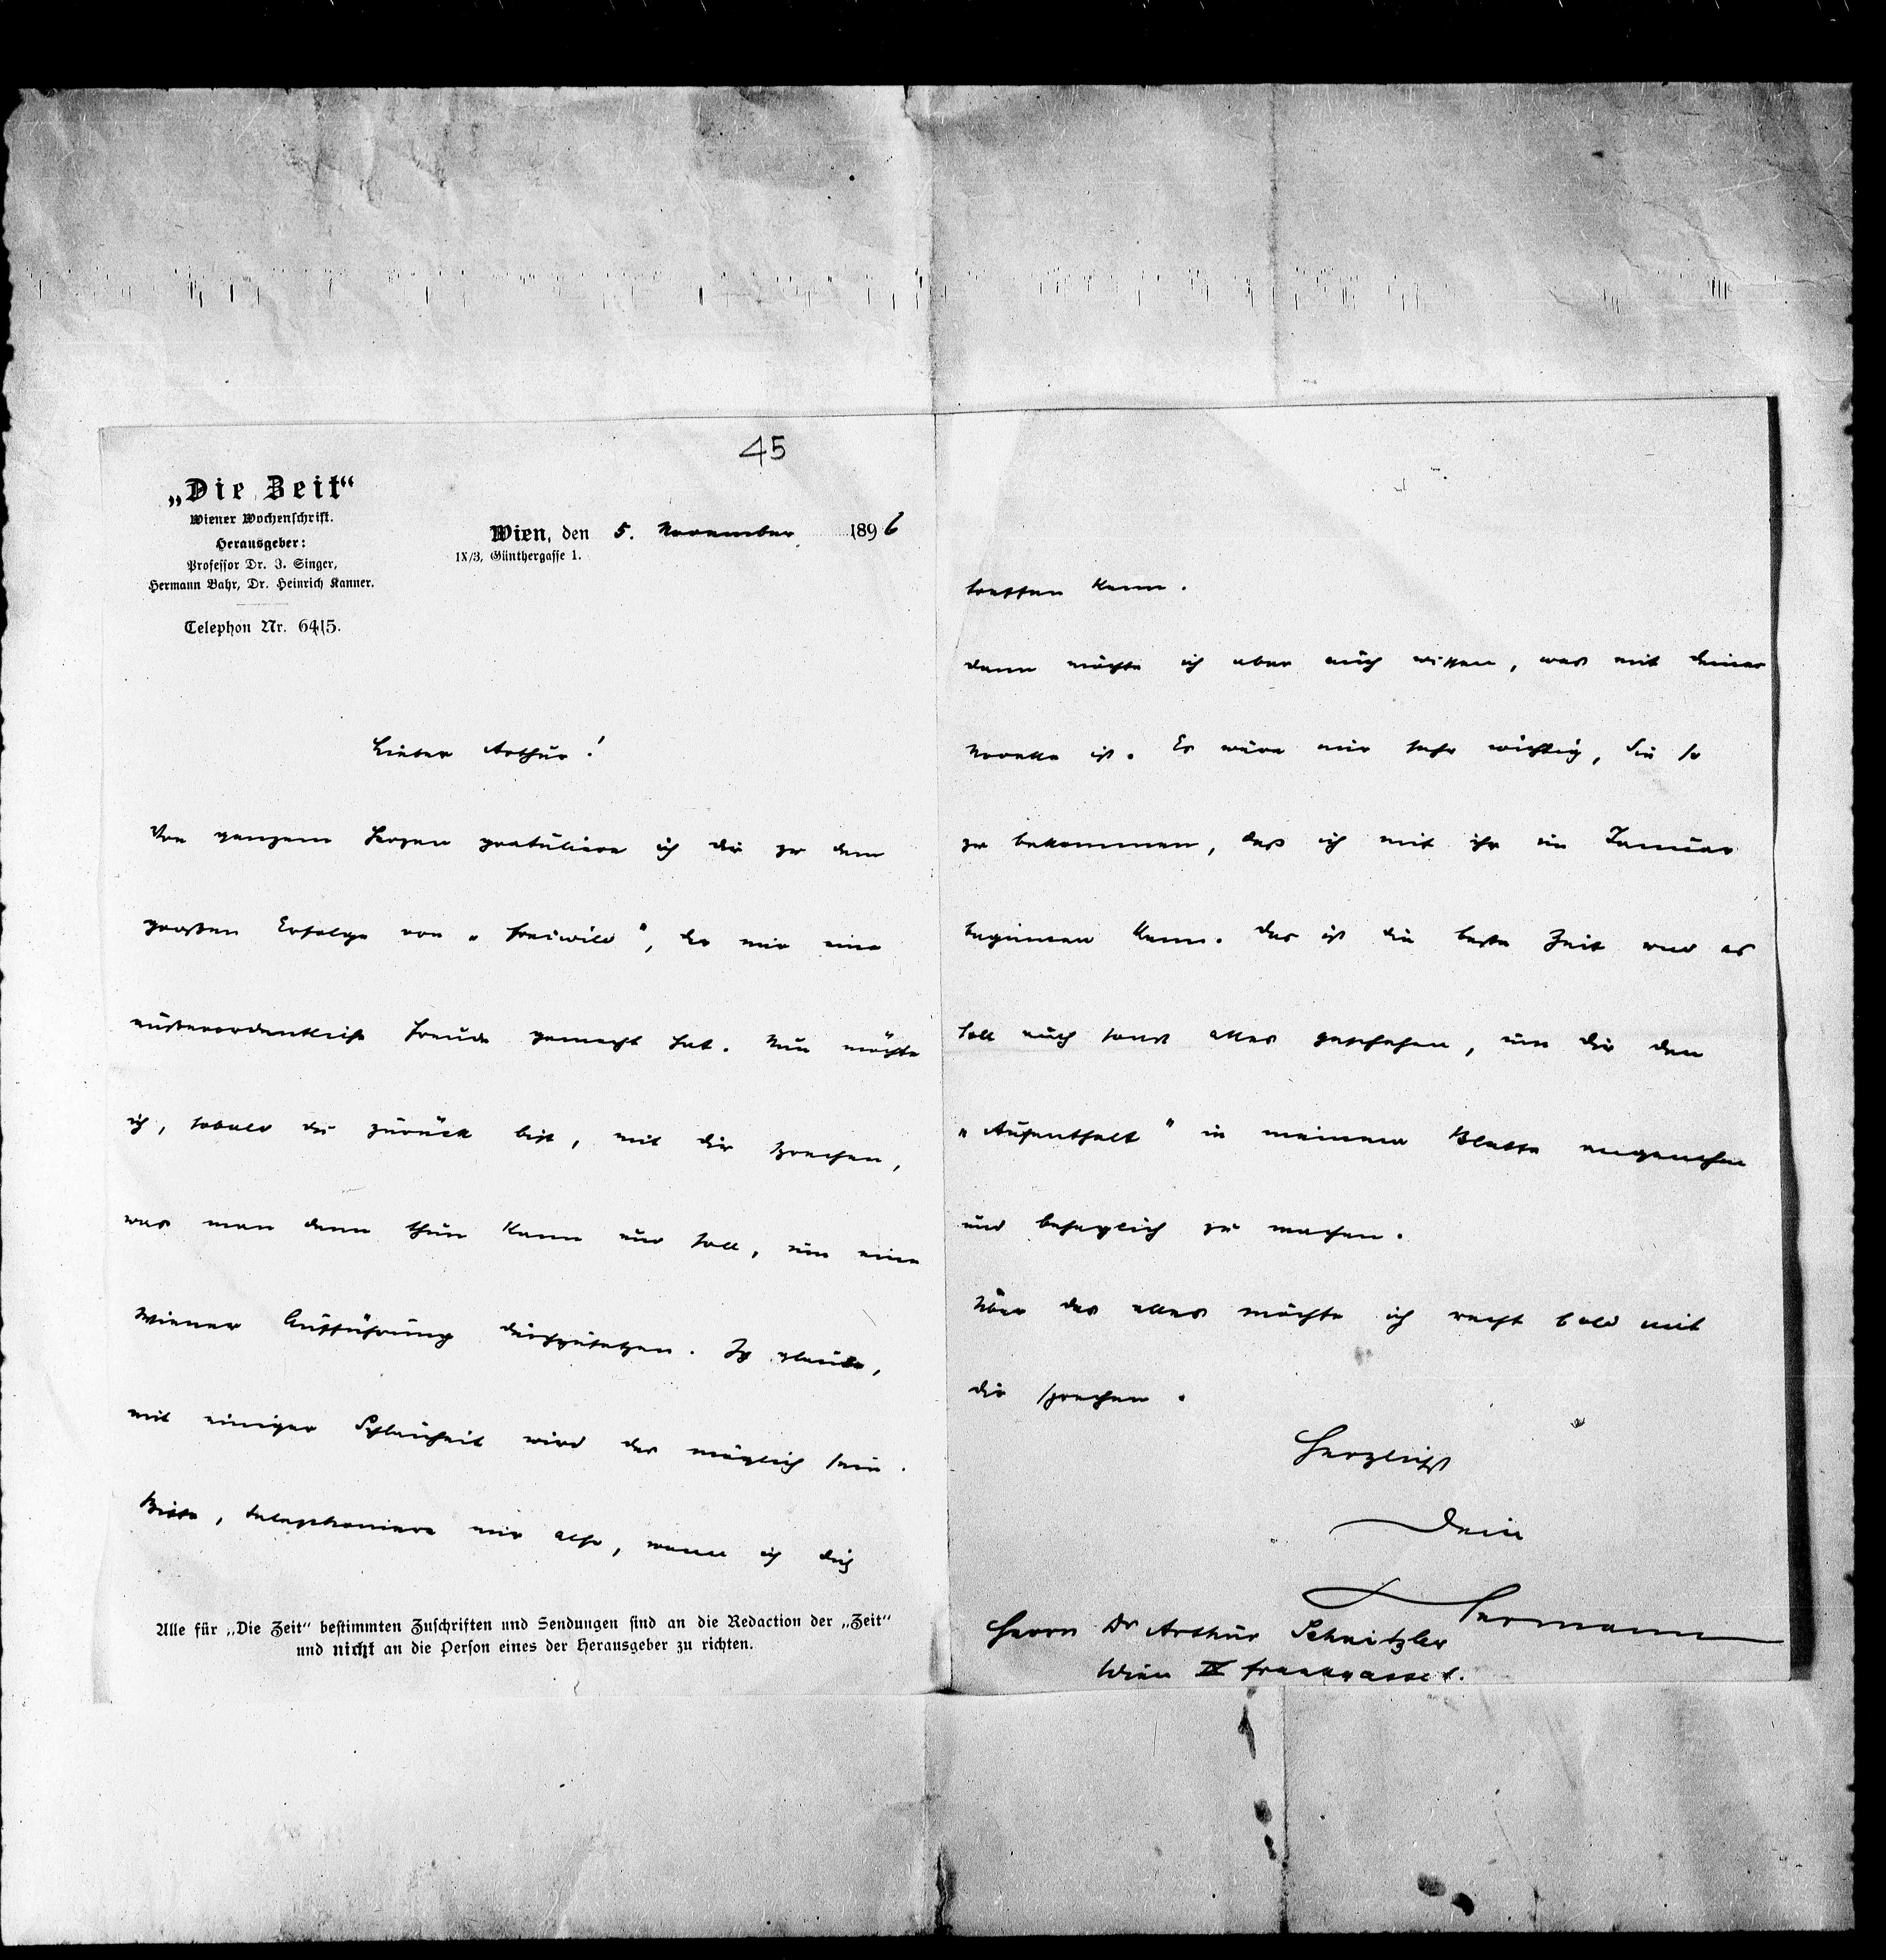 45
„Die Zeit“
Wiener Wochenschrift.
Herausgeber:
Professor Dr. J. Singer,
Hermann Bahr, Dr. Heinrich Kanner.
Telephon Nr. 6415.
Wien, den 5. November 1896
IX/3, Günthergasse 1.
Lieber Arthur!
Von ganzem Herzen gratuliere ich dir zu dem
großen Erfolge von „Freiwild“, der mir eine
außerordentliche Freude gemacht hat. Nun möchte
ich, sobald du zurück bist, mit dir sprechen,
was man denn thun kann und soll, um eine
Wiener Aufführung durchzusetzen. Ich glaube,
mit einiger Schlauheit wird das möglich sein.
Bitte, telephoniere mir also, wann ich dich
Alle für „Die Zeit“ bestimmten Zuschriften und Sendungen sind an die Redaction der „Zeit“
und nicht an die Person eines der Herausgeber zu richten.
treffen kann.
Dann möchte ich aber auch wissen, was mit deiner
Novelle ist. Es wäre mir sehr wichtig, sie so
zu bekommen, daß ich mit ihr im Januar
beginnen kann. Das ist die beste Zeit und es
soll auch sonst alles geschehen, um dir den
„Aufenthalt“ in meinem Blatte angenehm
und behaglich zu machen.
Über das alles möchte ich recht bald mit
dir sprechen.
Herzlichst
Dein
Hermann
Herrn Dr Arthur Schnitzler
Wien IX Frankgasse 1.